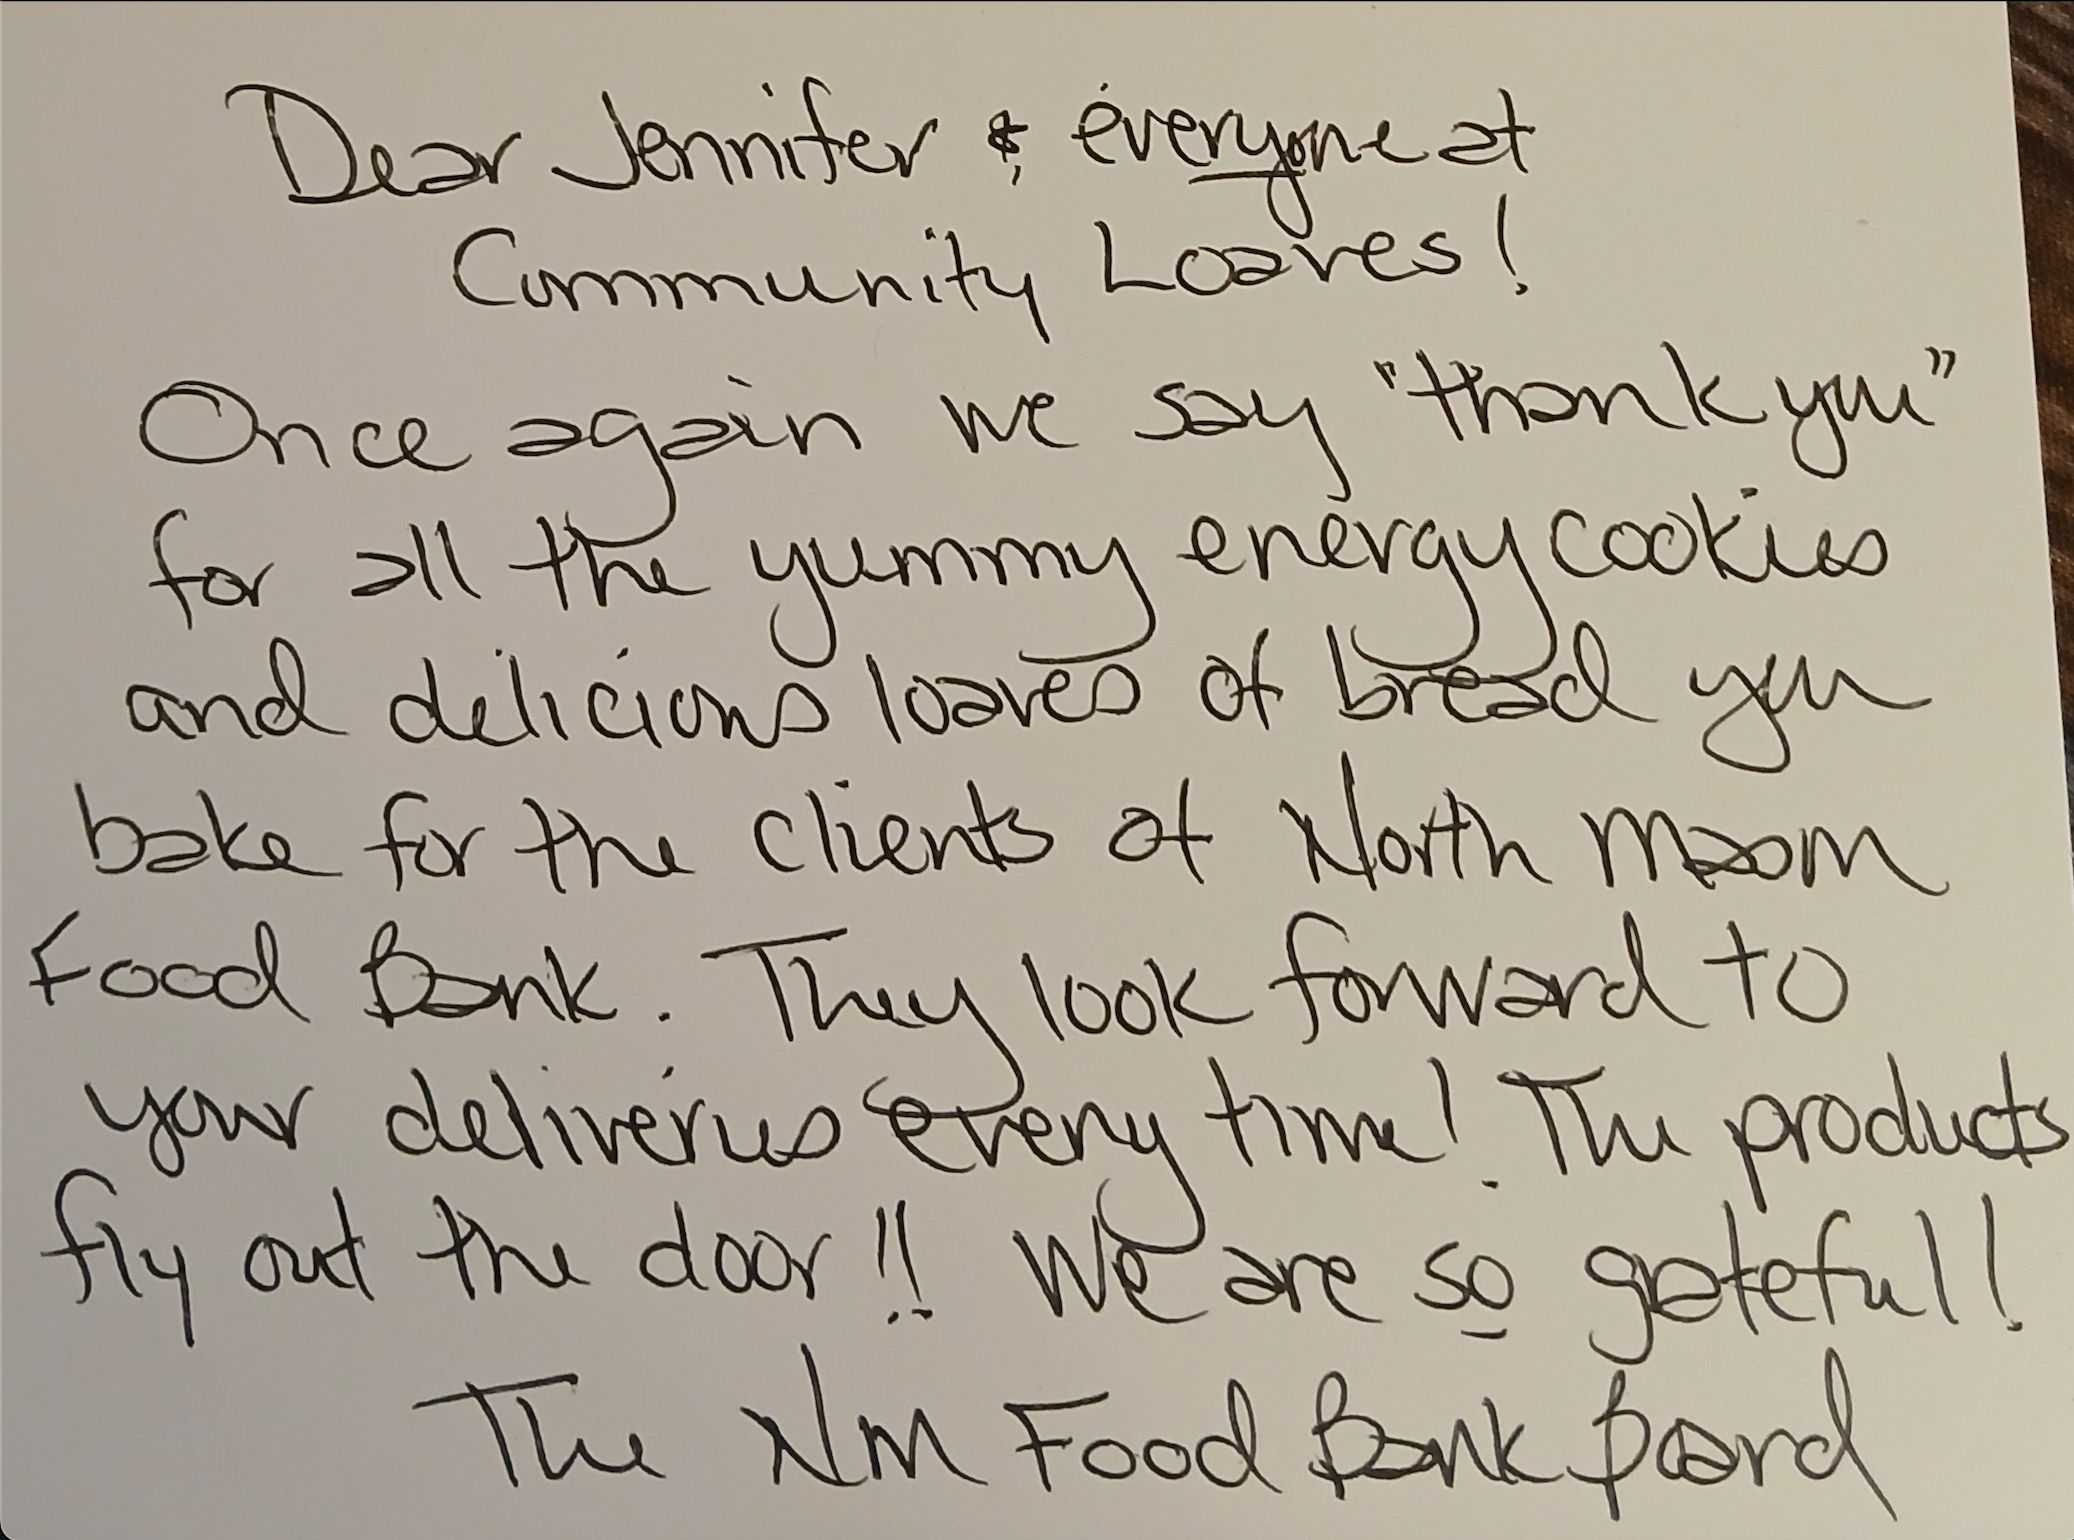 Dear Jennifer & everyone at
Community Loaves!
Once again we say "thank you"
for all the yummy energy cookies
and delicious loaves of bread you
bake for the clients of North Mason
Food Bank. They look forward to
your deliveries every time! The products
fly out the door!! We are so grateful!
The NM Food Bank Board